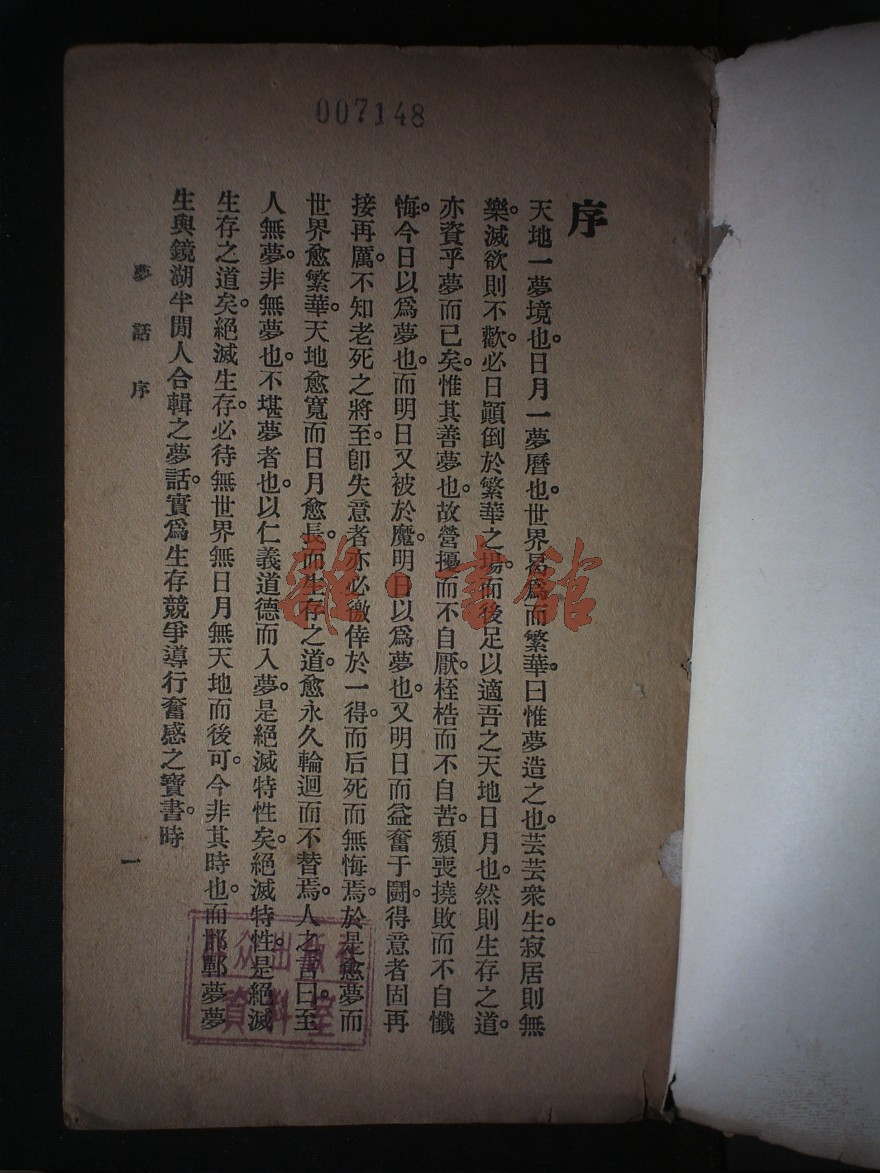 007148
序
天地一夢境也。日月一夢曆也。世界曷爲而繁華。曰惟夢造之也。芸芸衆生。寂居則無
樂。滅欲則不歡。必日顚倒於繁華之場。而後足以適吾之天地日月也。然則生存之道。
亦資乎夢而已矣。惟其善夢也。故營擾而不自厭。桎梏而不自苦。頹喪撓敗而不自懺
悔。今日以爲夢也。而明日又被於魔。明日以爲夢也。又明日而益奮于鬪。得意者固再
接再厲。不知老死之將至。卽失意者亦必徼倖於一得。而后死而無悔焉。於是愈夢而
世界愈繁華。天地愈寬而日月愈長。而生存之道。愈永久輪迴而不替焉。人之言曰。至
人無夢。非無夢也。不堪夢者也。以仁義道德而入夢。是絕滅特性矣。絕滅特性。是絕滅
生存之道矣。絕滅生存。必待無世界無日月無天地而後可。今非其時也。而邯鄲夢夢
生與鏡湖半閒人合輯之夢話。實爲生存競爭導行奮感之寶書。時
夢話序
一
雜·書館
众出版社
資料室